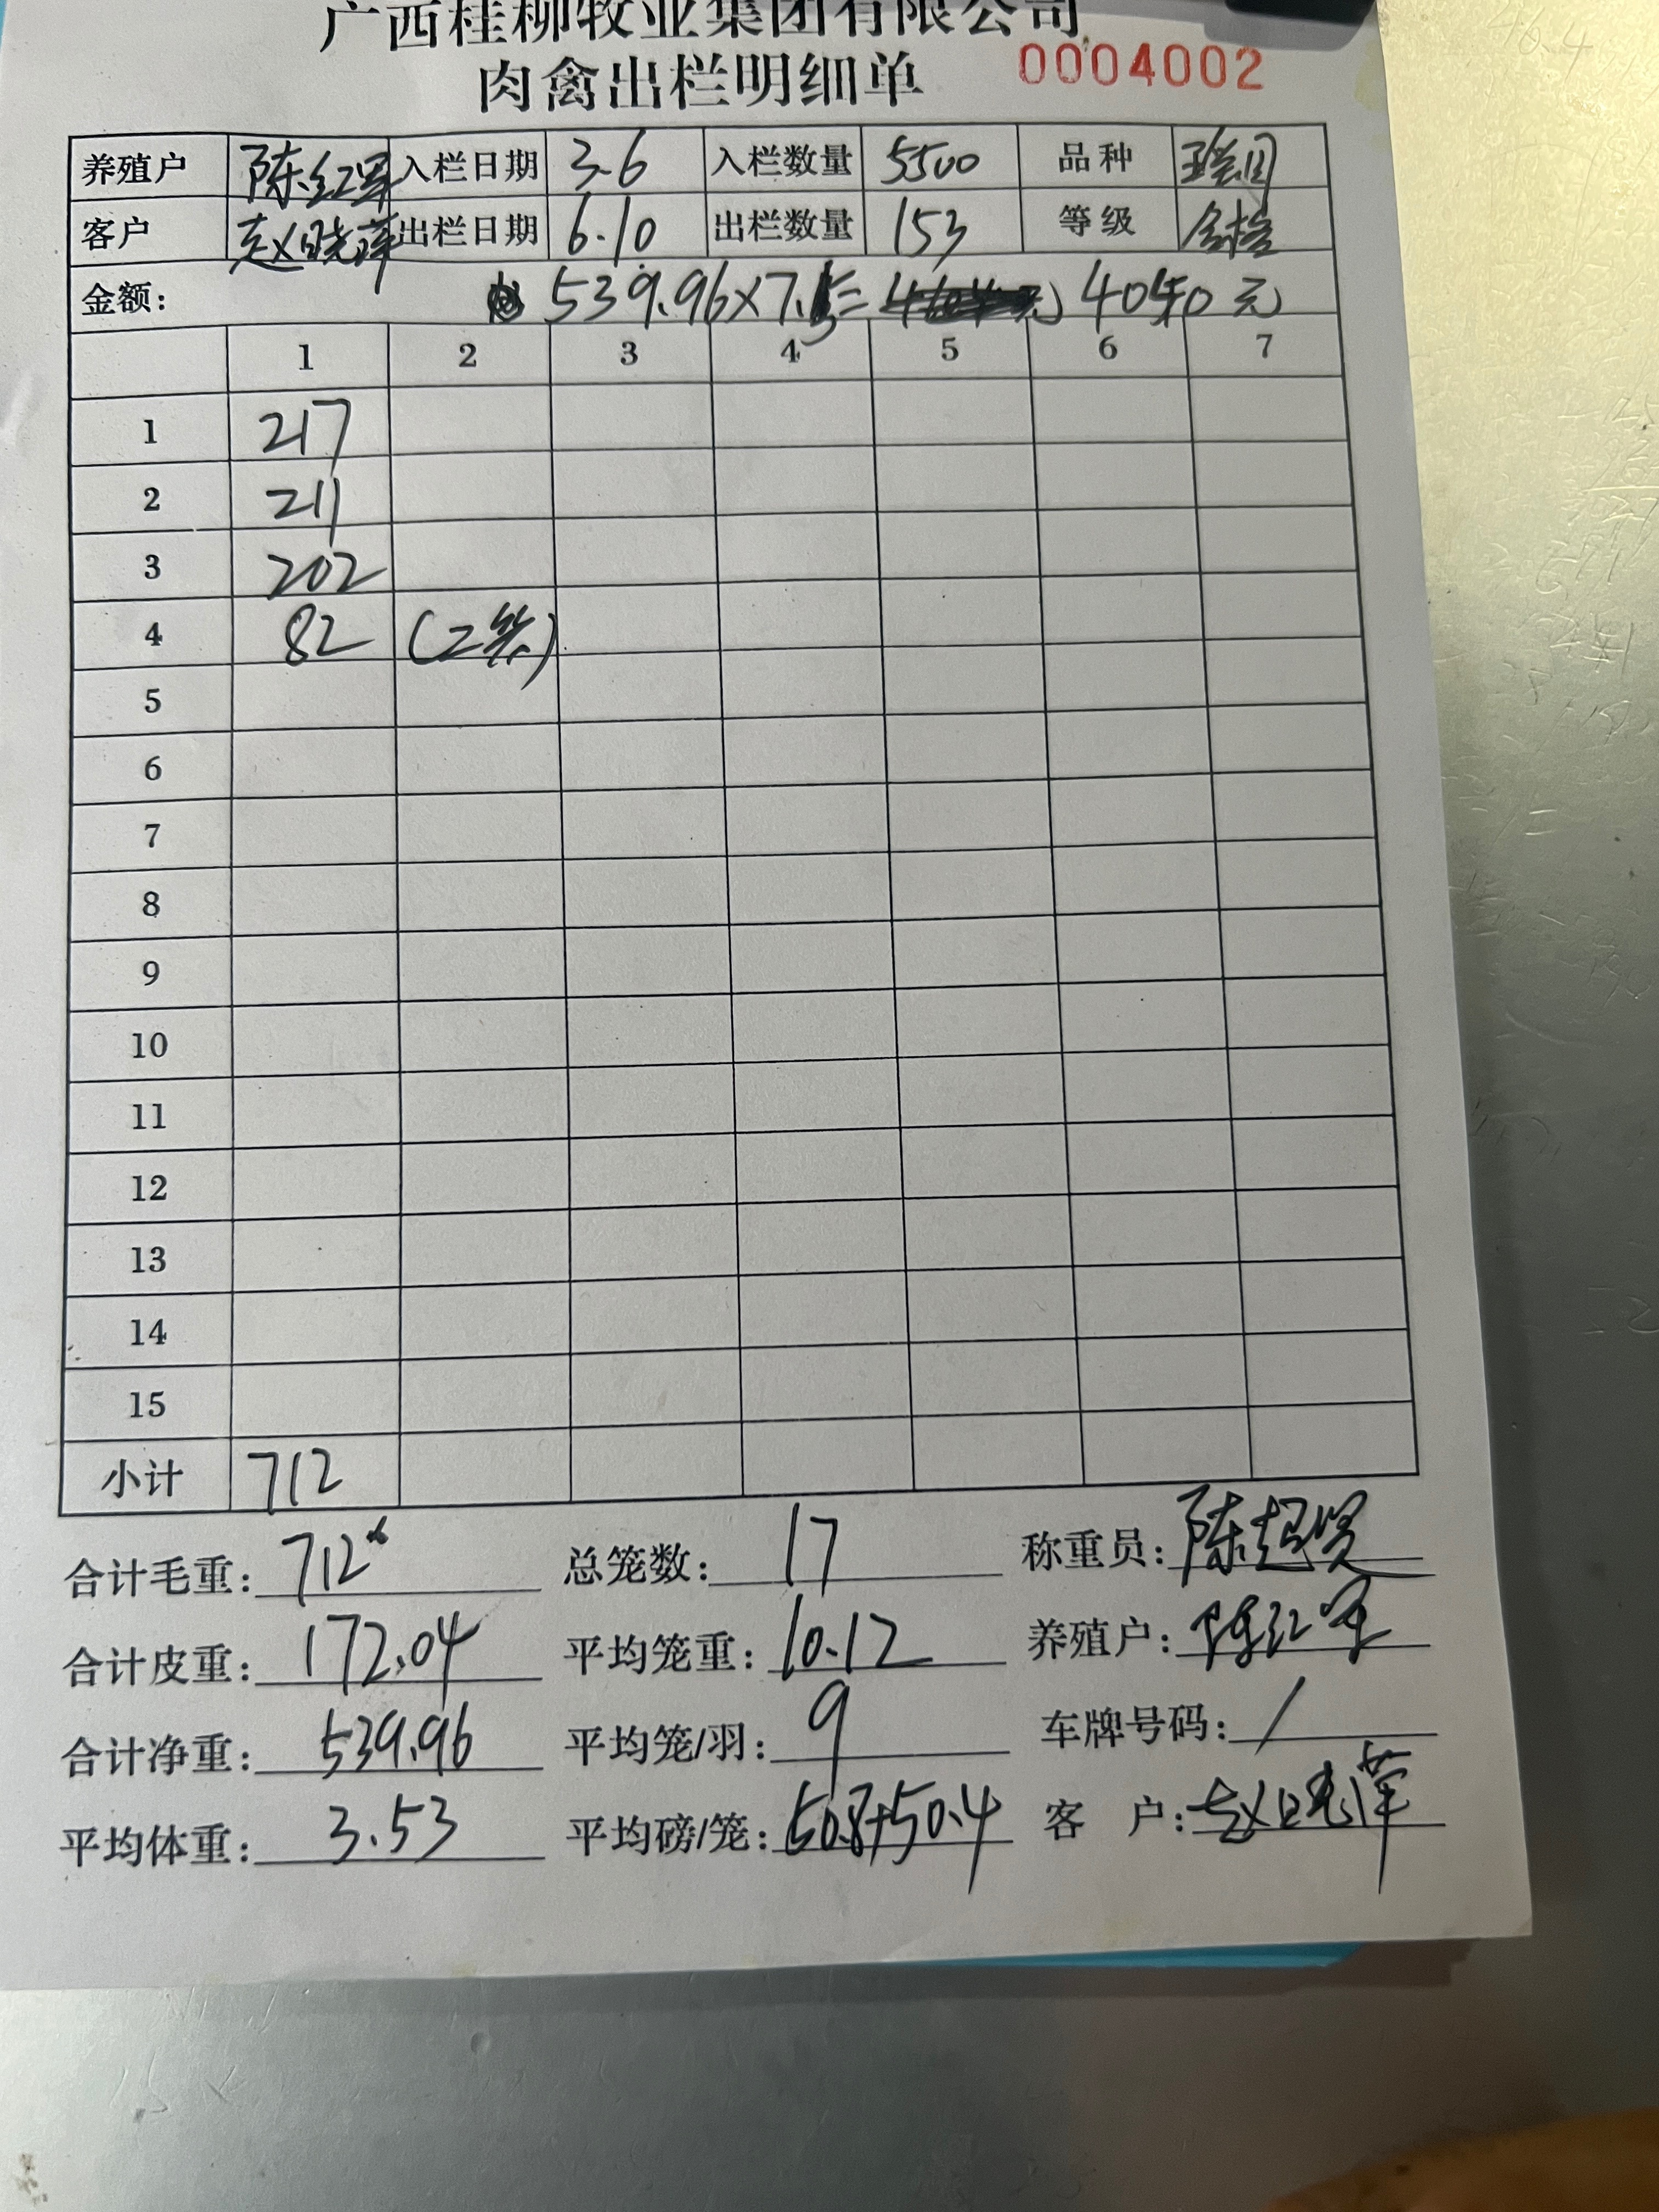 广西桂柳牧业集团有限公司
肉禽出栏明细单 0004002
养殖户 陈红军 入栏日期 3.6 入栏数量 5500 品种
客户 赵晓萍 出栏日期 6.10 出栏数量 153 等级
金额: 539.96×7.5= 4040元
1 2 3 4 5 6 7
1 217
2 211
3 202
4 82 (2笼)
5
6
7
8
9
10
11
12
13
14
15
小计 712
合计毛重: 712 总笼数: 17 称重员: 陈超贤
合计皮重: 172.04 平均笼重: 10.12 养殖户: 陈红军
合计净重: 539.96 平均笼/羽: 9 车牌号码: /
平均体重: 3.53 平均磅/笼: 50.8+50.4 客 户: 赵晓萍